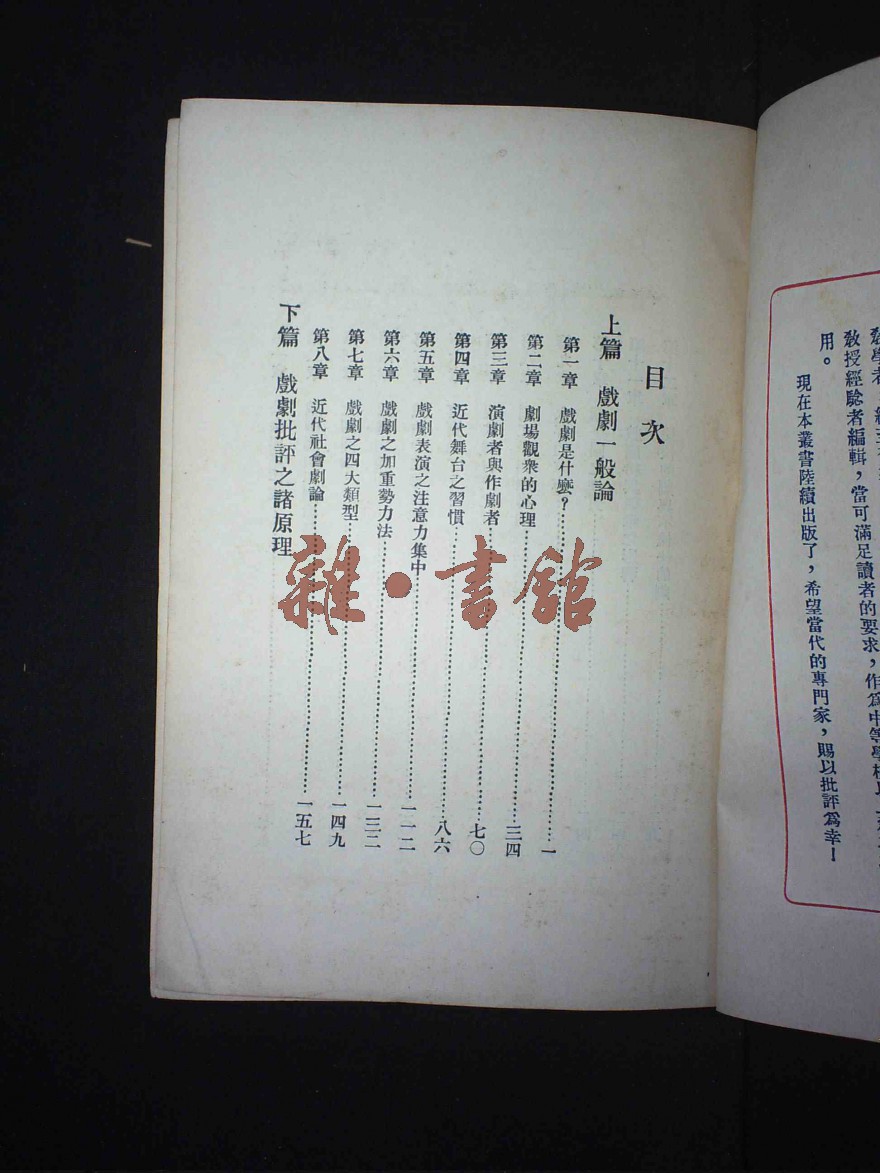 教授經驗者編輯，當可滿足讀者的要求，作爲中等學校
用。
現在本叢書陸續出版了，希望當代的專門家，賜以批評爲幸！
目次
上篇　戲劇一般論
第一章　戲劇是什麼？……一
第二章　劇場觀衆的心理……三四
第三章　演劇者與作劇者……七〇
第四章　近代舞台之習慣……八六
第五章　戲劇表演之注意力集中……一一二
第六章　戲劇之加重勢力法……一三二
第七章　戲劇之四大類型……一四九
第八章　近代社會劇論……一五七
下篇　戲劇批評之諸原理
雜·書館